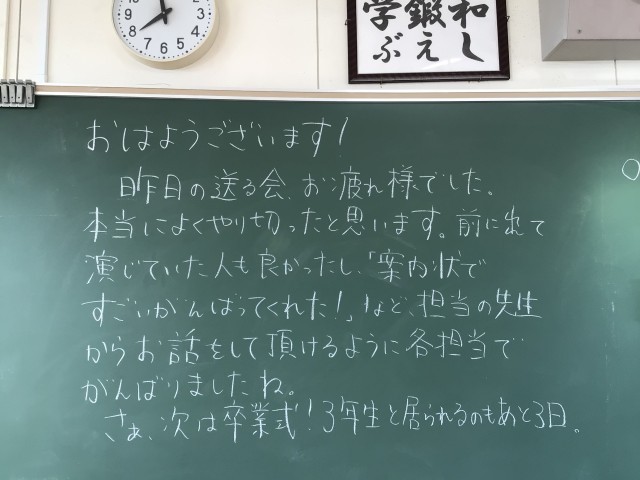 和し
鍛え
学ぶ
12
1
2
3
4
5
6
7
8
9
おはようございます!
昨日の送る会、お疲れ様でした。
本当によくやり切ったと思います。前に出て
演じていた人も良かったし、「案内状で
すごいがんばってくれた!」など、担当の先生
からお話をして頂けるように各担当で
がんばりましたね。
さぁ、次は卒業式!3年生と居られるのもあと3日。